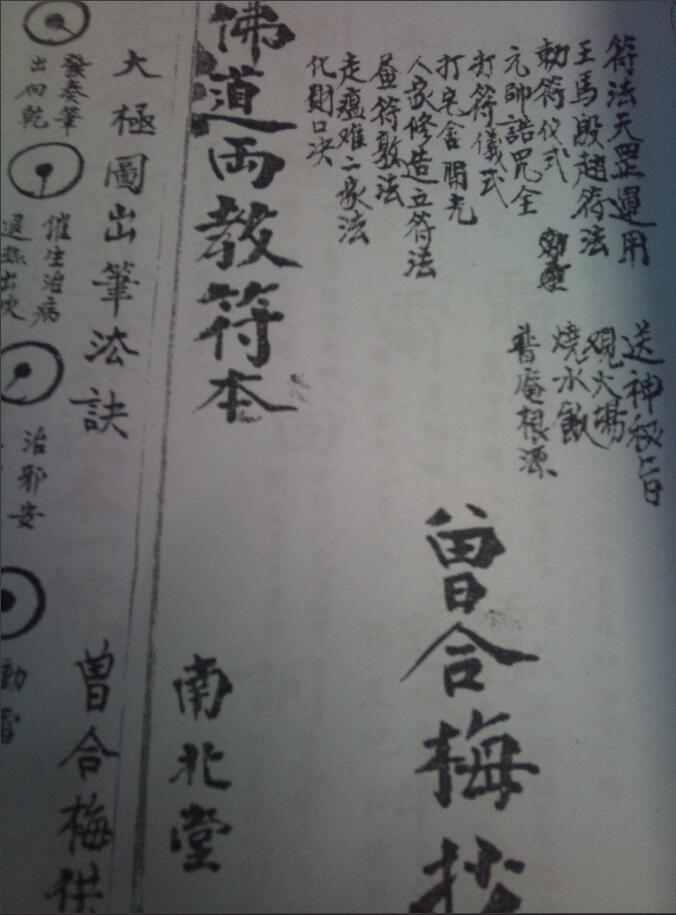 符法天罡運用
王馬殷趙符法
勅符仪式
元帥誥咒全
打符儀式
打宅舍開光
人家修造立符法
叠符敷法
走瘟难二家法
化財口决
送神秘旨
观火場
燒水飯
普庵根源
曾合梅抄
佛道両教符本
南北堂
大極圖出筆法訣
曾合梅供
發奏筆
出向乾
催生治病
治邪安
動雷